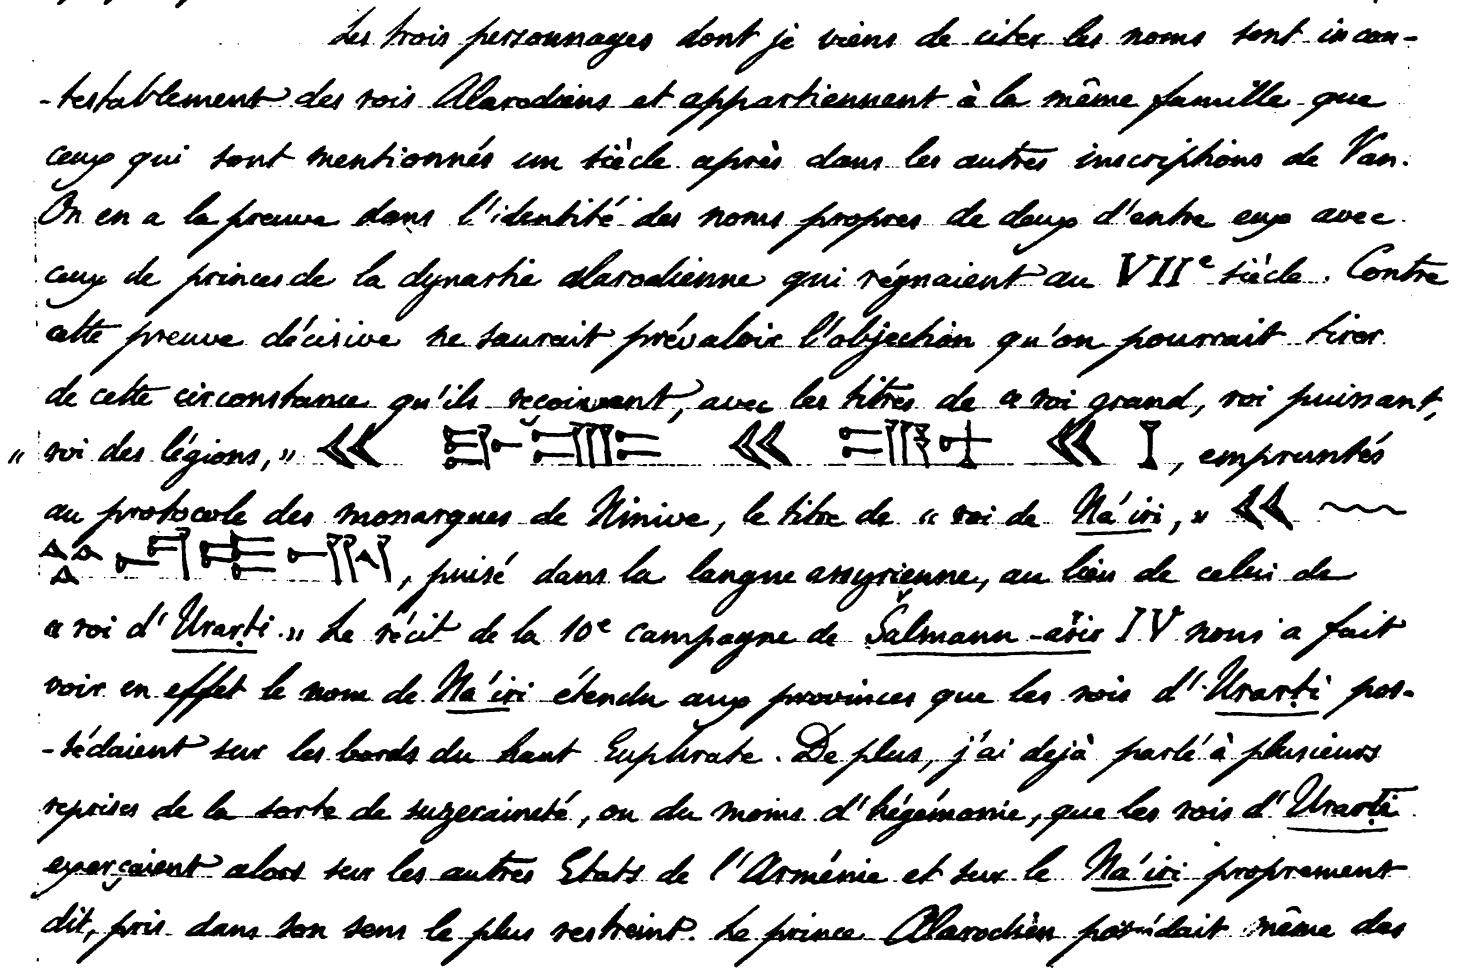 Les trois personnages dont je viens de citer les noms sont incon-
-testablement des rois Alarodiens et appartiennent à la même famille que
ceux qui sont mentionnés un siècle après dans les autres inscriptions de Van.
On en a la preuve dans l'identité des noms propres de deux d'entre eux avec
ceux de princes de la dynastie alarodienne qui régnaient au VIIe siècle. Contre
cette preuve décisive ne saurait prévaloir l'objection qu'on pourrait tirer
de cette circonstance qu'ils reçoivent, avec les titres de « roi grand, roi puissant,
« roi des légions, » , empruntés
au protocole des monarques de Ninive, le titre de « roi de Na'iri, »
, puisé dans la langue assyrienne, au lieu de celui de
« roi d'Urarṭi. » Le récit de la 10e campagne de Šalmann-ašir IV nous a fait
voir en effet le nom de Na'iri étendu aux provinces que les rois d'Urarṭi pos-
-sédaient sur les bords du haut Euphrate. De plus, j'ai dejà parlé à plusieurs
reprises de la sorte de suzeraineté, ou du moins d'hégémonie, que les rois d'Urarṭi
exerçaient alors sur les autres Etats de l'Arménie et sur le Na'iri proprement
dit, pris dans son sens le plus restreint. Le prince Alarodien possédait même des